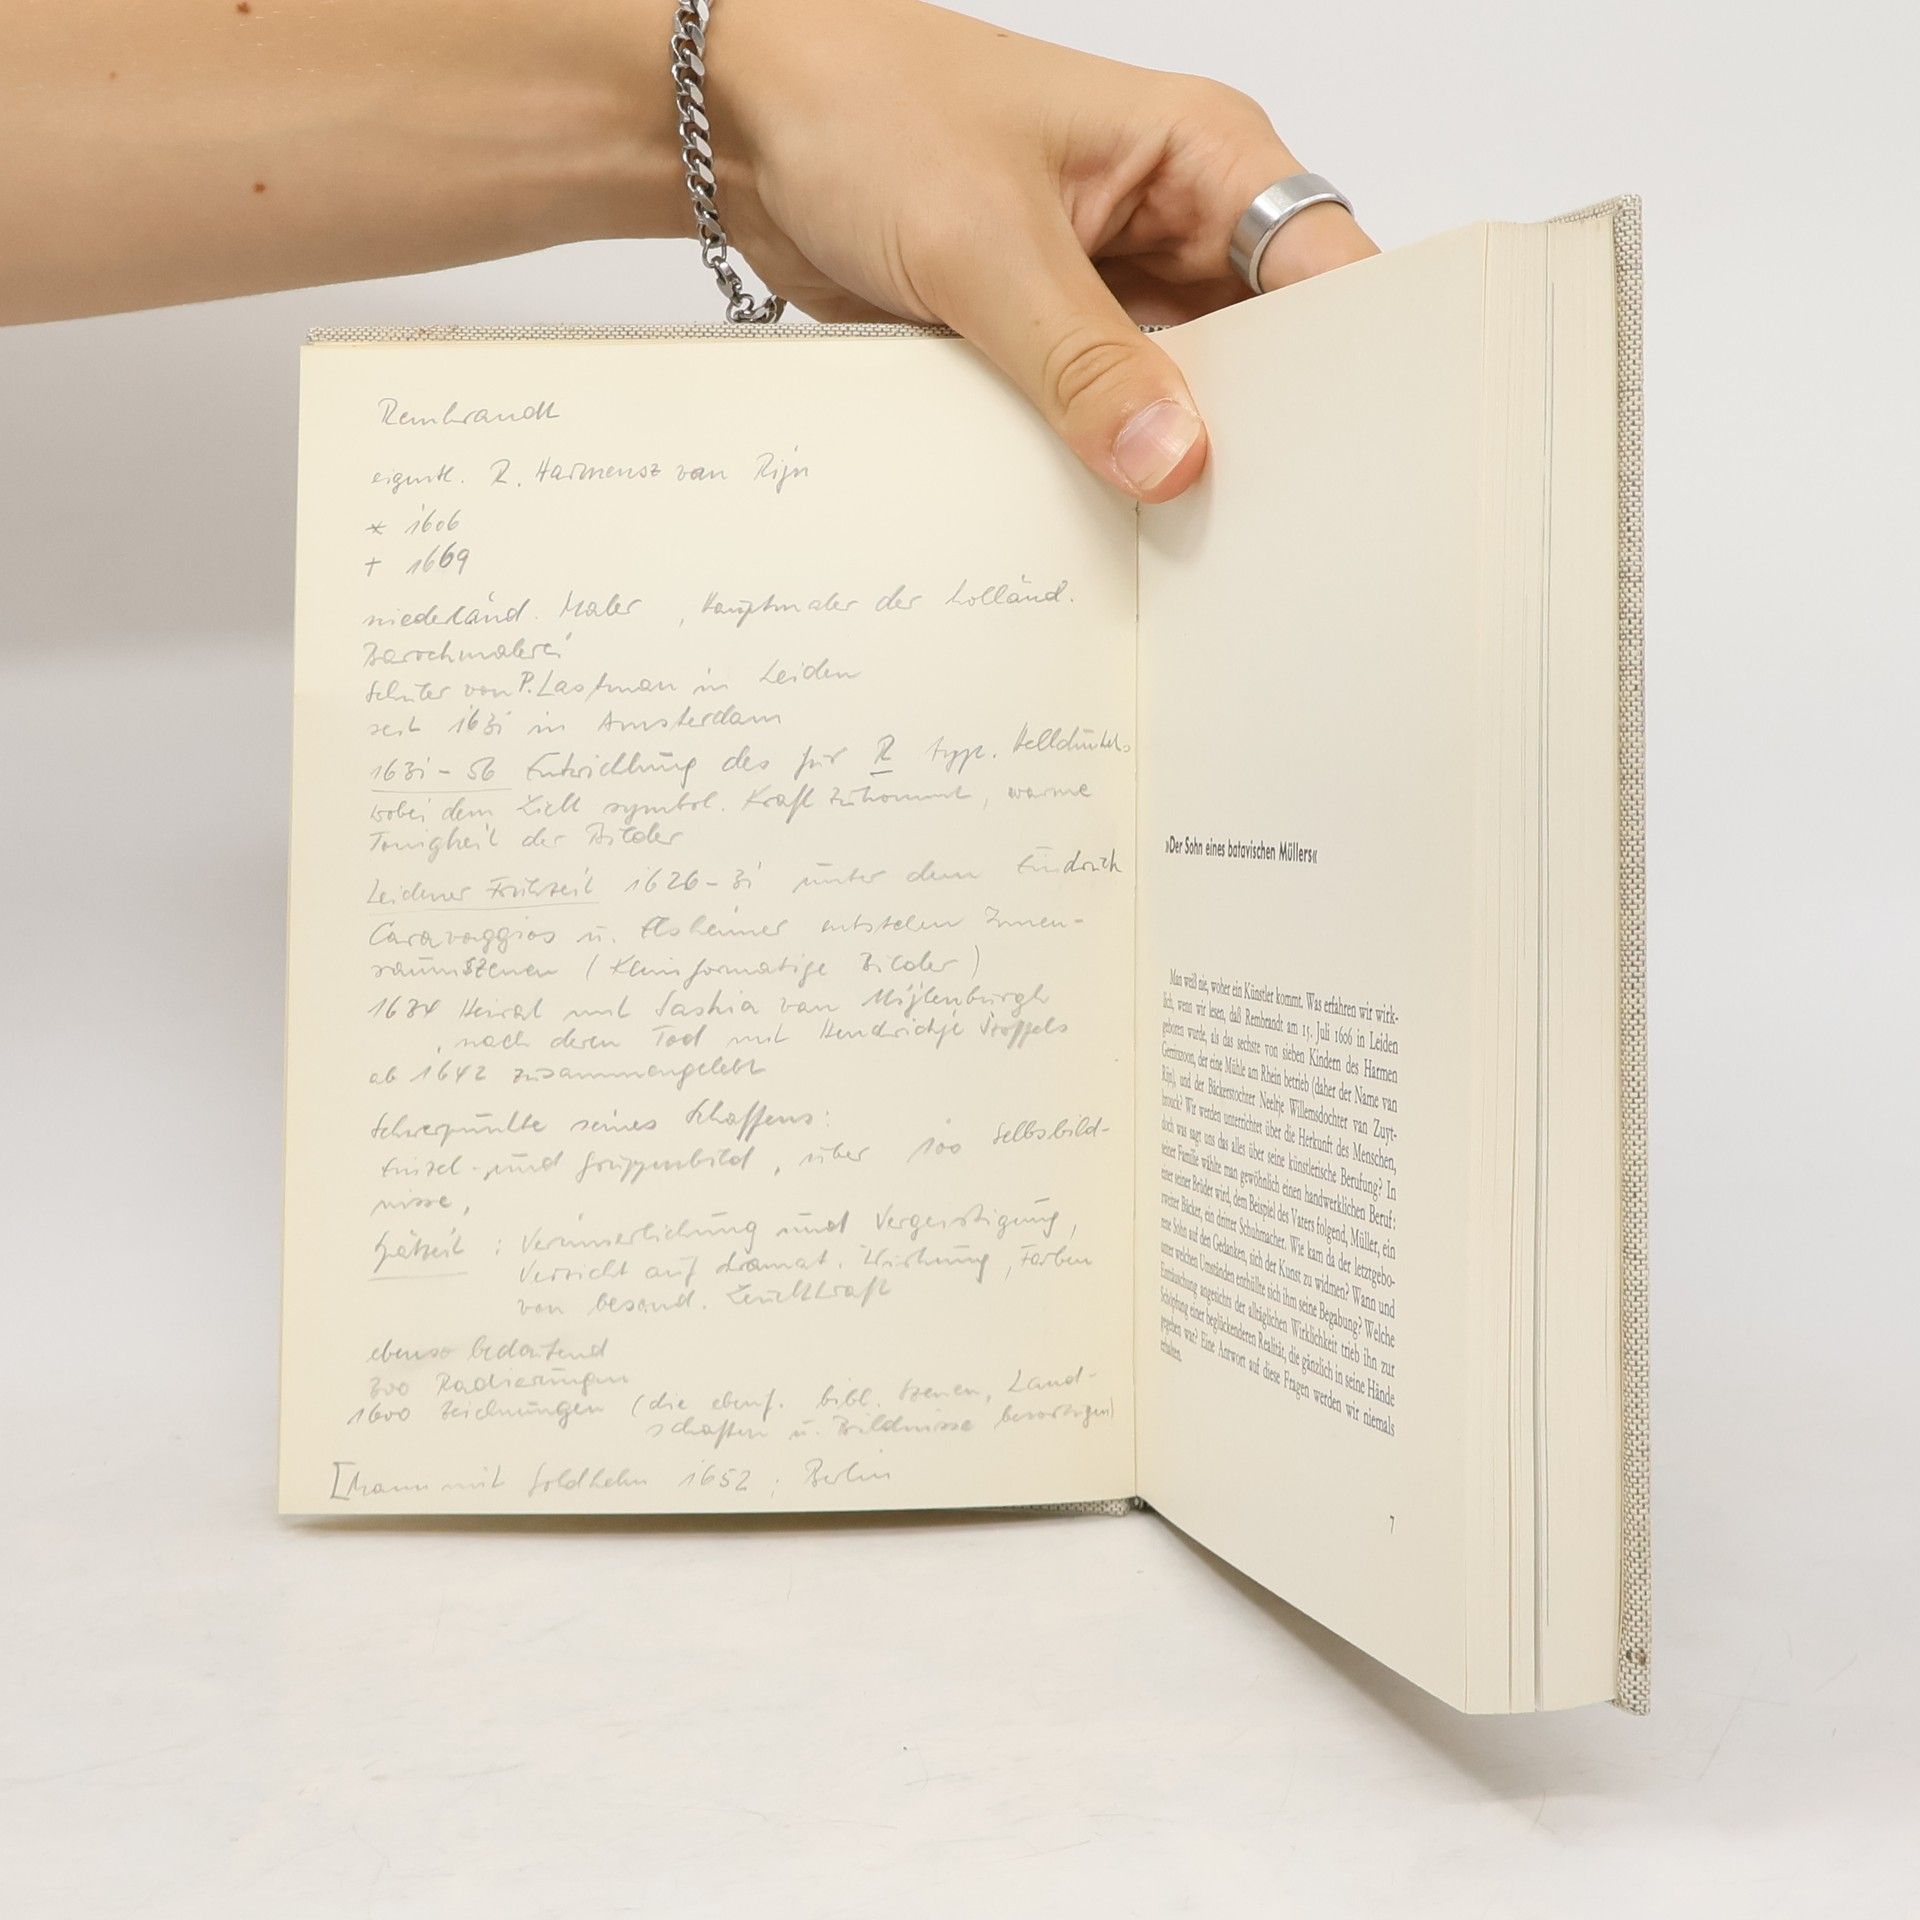 Rembrandt
eigentl. R. Harmensz van Rijn
* 1606
+ 1669
niederländ. Maler, Hauptmaler der holländ.
Barockmalerei
Schüler von P. Lastman in Leiden
seit 1631 in Amsterdam
1631-56 Entwicklung des für R typ. Helldunkels
wobei dem Licht symbol. Kraft zukommt, warme
Tonigkeit der Bilder
Leidener Frühzeit 1626-31 unter dem Eindruck
Caravaggios u. Elsheimer entstehen Innen-
raumszenen (Kleinformatige Bilder)
1634 Heirat mit Saskia van Uijlenburgh
, nach deren Tod mit Hendrickje Stoffels
ab 1642 zusammengelebt
Schwerpunkte seines Schaffens:
Einzel- und Gruppenbild, über 100 Selbsbild-
nisse,
Spätzeit : Verinnerlichung und Vergeistigung,
Verzicht auf dramat. Wirkung, Farben
von besond. Leuchtkraft
ebenso bedeutend
300 Radierungen
1600 Zeichnungen (die ebenf. bibl. Szenen, Land-
schaften u. Bildnisse bevorzugen)
[Mann mit Goldhelm 1652; Berlin
»Der Sohn eines batavischen Müllers«
Man weiß nie, woher ein Künstler kommt. Was erfahren wir wirk-
lich, wenn wir lesen, daß Rembrandt am 15. Juli 1606 in Leiden
geboren wurde, als das sechste von sieben Kindern des Harmen
Gerritszoon, der eine Mühle am Rhein betrieb (daher der Name van
Rijn), und der Bäckerstochter Neeltje Willemsdochter van Zuyt-
brouck? Wir werden unterrichtet über die Herkunft des Menschen,
doch was sagt uns das alles über seine künstlerische Berufung? In
seiner Familie wählte man gewöhnlich einen handwerklichen Beruf:
einer seiner Brüder wird, dem Beispiel des Vaters folgend, Müller, ein
zweiter Bäcker, ein dritter Schuhmacher. Wie kam da der letztgebo-
rene Sohn auf den Gedanken, sich der Kunst zu widmen? Wann und
unter welchen Umständen enthüllte sich ihm seine Begabung? Welche
Enttäuschung angesichts der alltäglichen Wirklichkeit trieb ihn zur
Schöpfung einer beglückenderen Realität, die gänzlich in seine Hände
gegeben war? Eine Antwort auf diese Fragen werden wir niemals
erhalten.
7